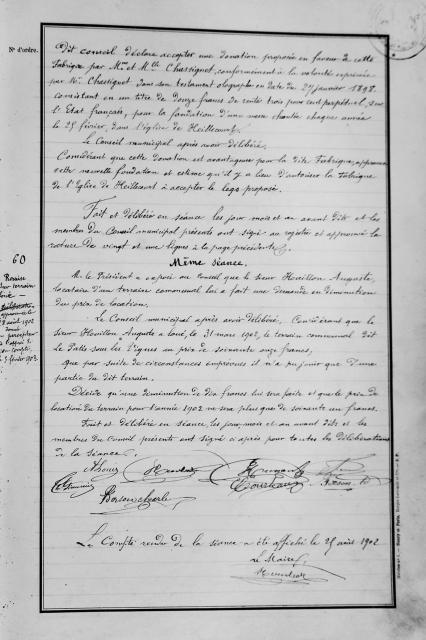 N° d'ordre.
Dit conseil déclare accepter une donation proposée en faveur de cette
Fabrique par Mme et Mlle Chassignet, conformément à la volonté exprimée
par Mr. Chassignet dans son testament olographe en date du 27 janvier 1898.
consistant en un titre de douze francs de rente trois pour cent perpétuel, sur
l'Etat français, pour la fondation d'une messe chantée chaque année
le 25 février, dans l'église de Heillecourt.
Le Conseil municipal après avoir délibéré,
Considérant que cette donation est avantageuse pour la dite Fabrique, approuve
cette nouvelle fondation et estime qu'il y a lieu d'autoriser la Fabrique
de l'Eglise de Heillecourt à accepter le legs proposé.
Fait et délibéré en séance les jour mois et an avant dits et les
membres du Conseil municipal présents ont signé au registre et approuvé la
rature de vingt et une lignes à la page précédente.
60
Même séance.
M. le Président a exposé au Conseil que le sieur Houillon Auguste,
locataire d'un terrain communal lui a fait une demande en diminution
du prix de location.
Le Conseil municipal après avoir délibéré, Considérant que le
sieur Houillon Auguste a loué, le 31 mars 1902, le terrain communal dit
le Patis sous les Vignes au prix de soixante onze francs,
que par suite de circonstances imprévues il n'a pu jouir que d'une
partie du dit terrain.
Décide qu'une diminution de dix francs lui sera faite et que le prix de
location du terrain pour l'année 1902 ne sera plus que de soixante un francs.
Fait et délibéré en séance, les jour, mois et an avant dits et les
membres du Conseil présents ont signé ci après pour toutes les délibérations
de la séance.
Le Compte rendu de la séance a été affiché le 25 août 1902
Le Maire,